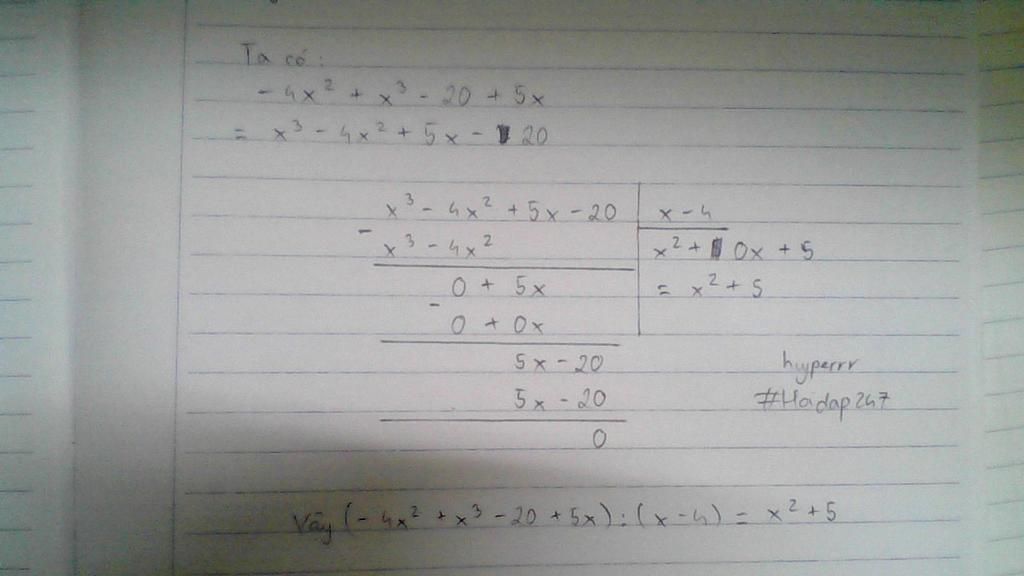 Ta có:
- 4x² + x³ - 20 + 5x
= x³ - 4x² + 5x - 20
x³ - 4x² + 5x - 20 | x - 4
- x³ - 4x² | x² + 0x + 5
0 + 5x | = x² + 5
- 0 + 0x
5x - 20
hyperrr
5x - 20
#Hoidap247
0
Vậy (- 4x² + x³ - 20 + 5x) : (x - 4) = x² + 5